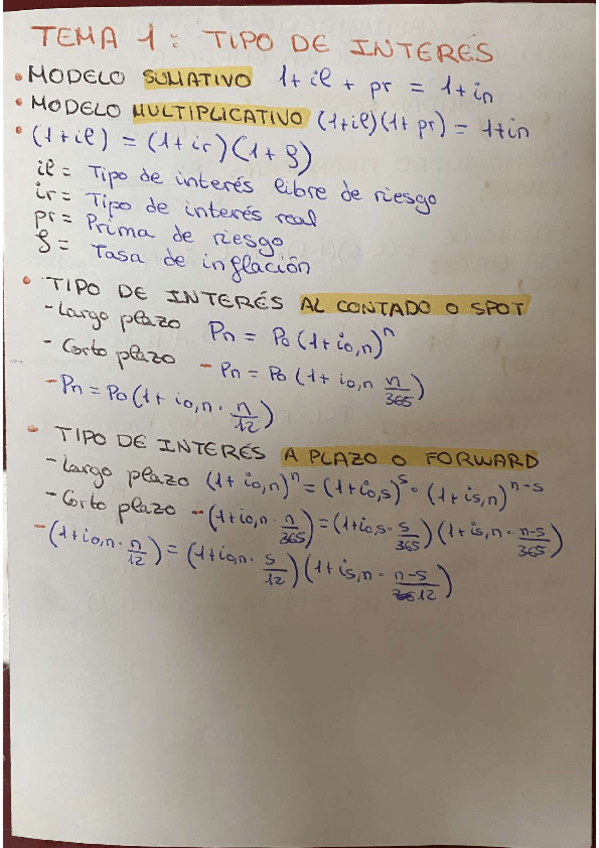 TEMA 1: TIPO DE INTERÉS
• MODELO SUMATIVO 1+il + pr = 1+in
• MODELO MULTIPLICATIVO (1+il)(1+pr) = 1+in
• (1+il) = (1+ir)(1+g)
il = Tipo de interés libre de riesgo
ir = Tipo de interés real
pr = Prima de riesgo
g = Tasa de inflación
• TIPO DE INTERÉS AL CONTADO O SPOT
- Largo plazo Pn = Po(1+io,n)^n
- Corto plazo - Pn = Po(1+io,n n/365)
- Pn = Po(1+io,n · n/12)
• TIPO DE INTERÉS A PLAZO O FORWARD
- Largo plazo (1+io,n)^n = (1+io,s)^s · (1+is,n)^n-s
- Corto plazo - (1+io,n · n/365) = (1+io,s · s/365)(1+is,n · n-s/365)
- (1+io,n · n/12) = (1+io,n · s/12)(1+is,n · n-s/12)